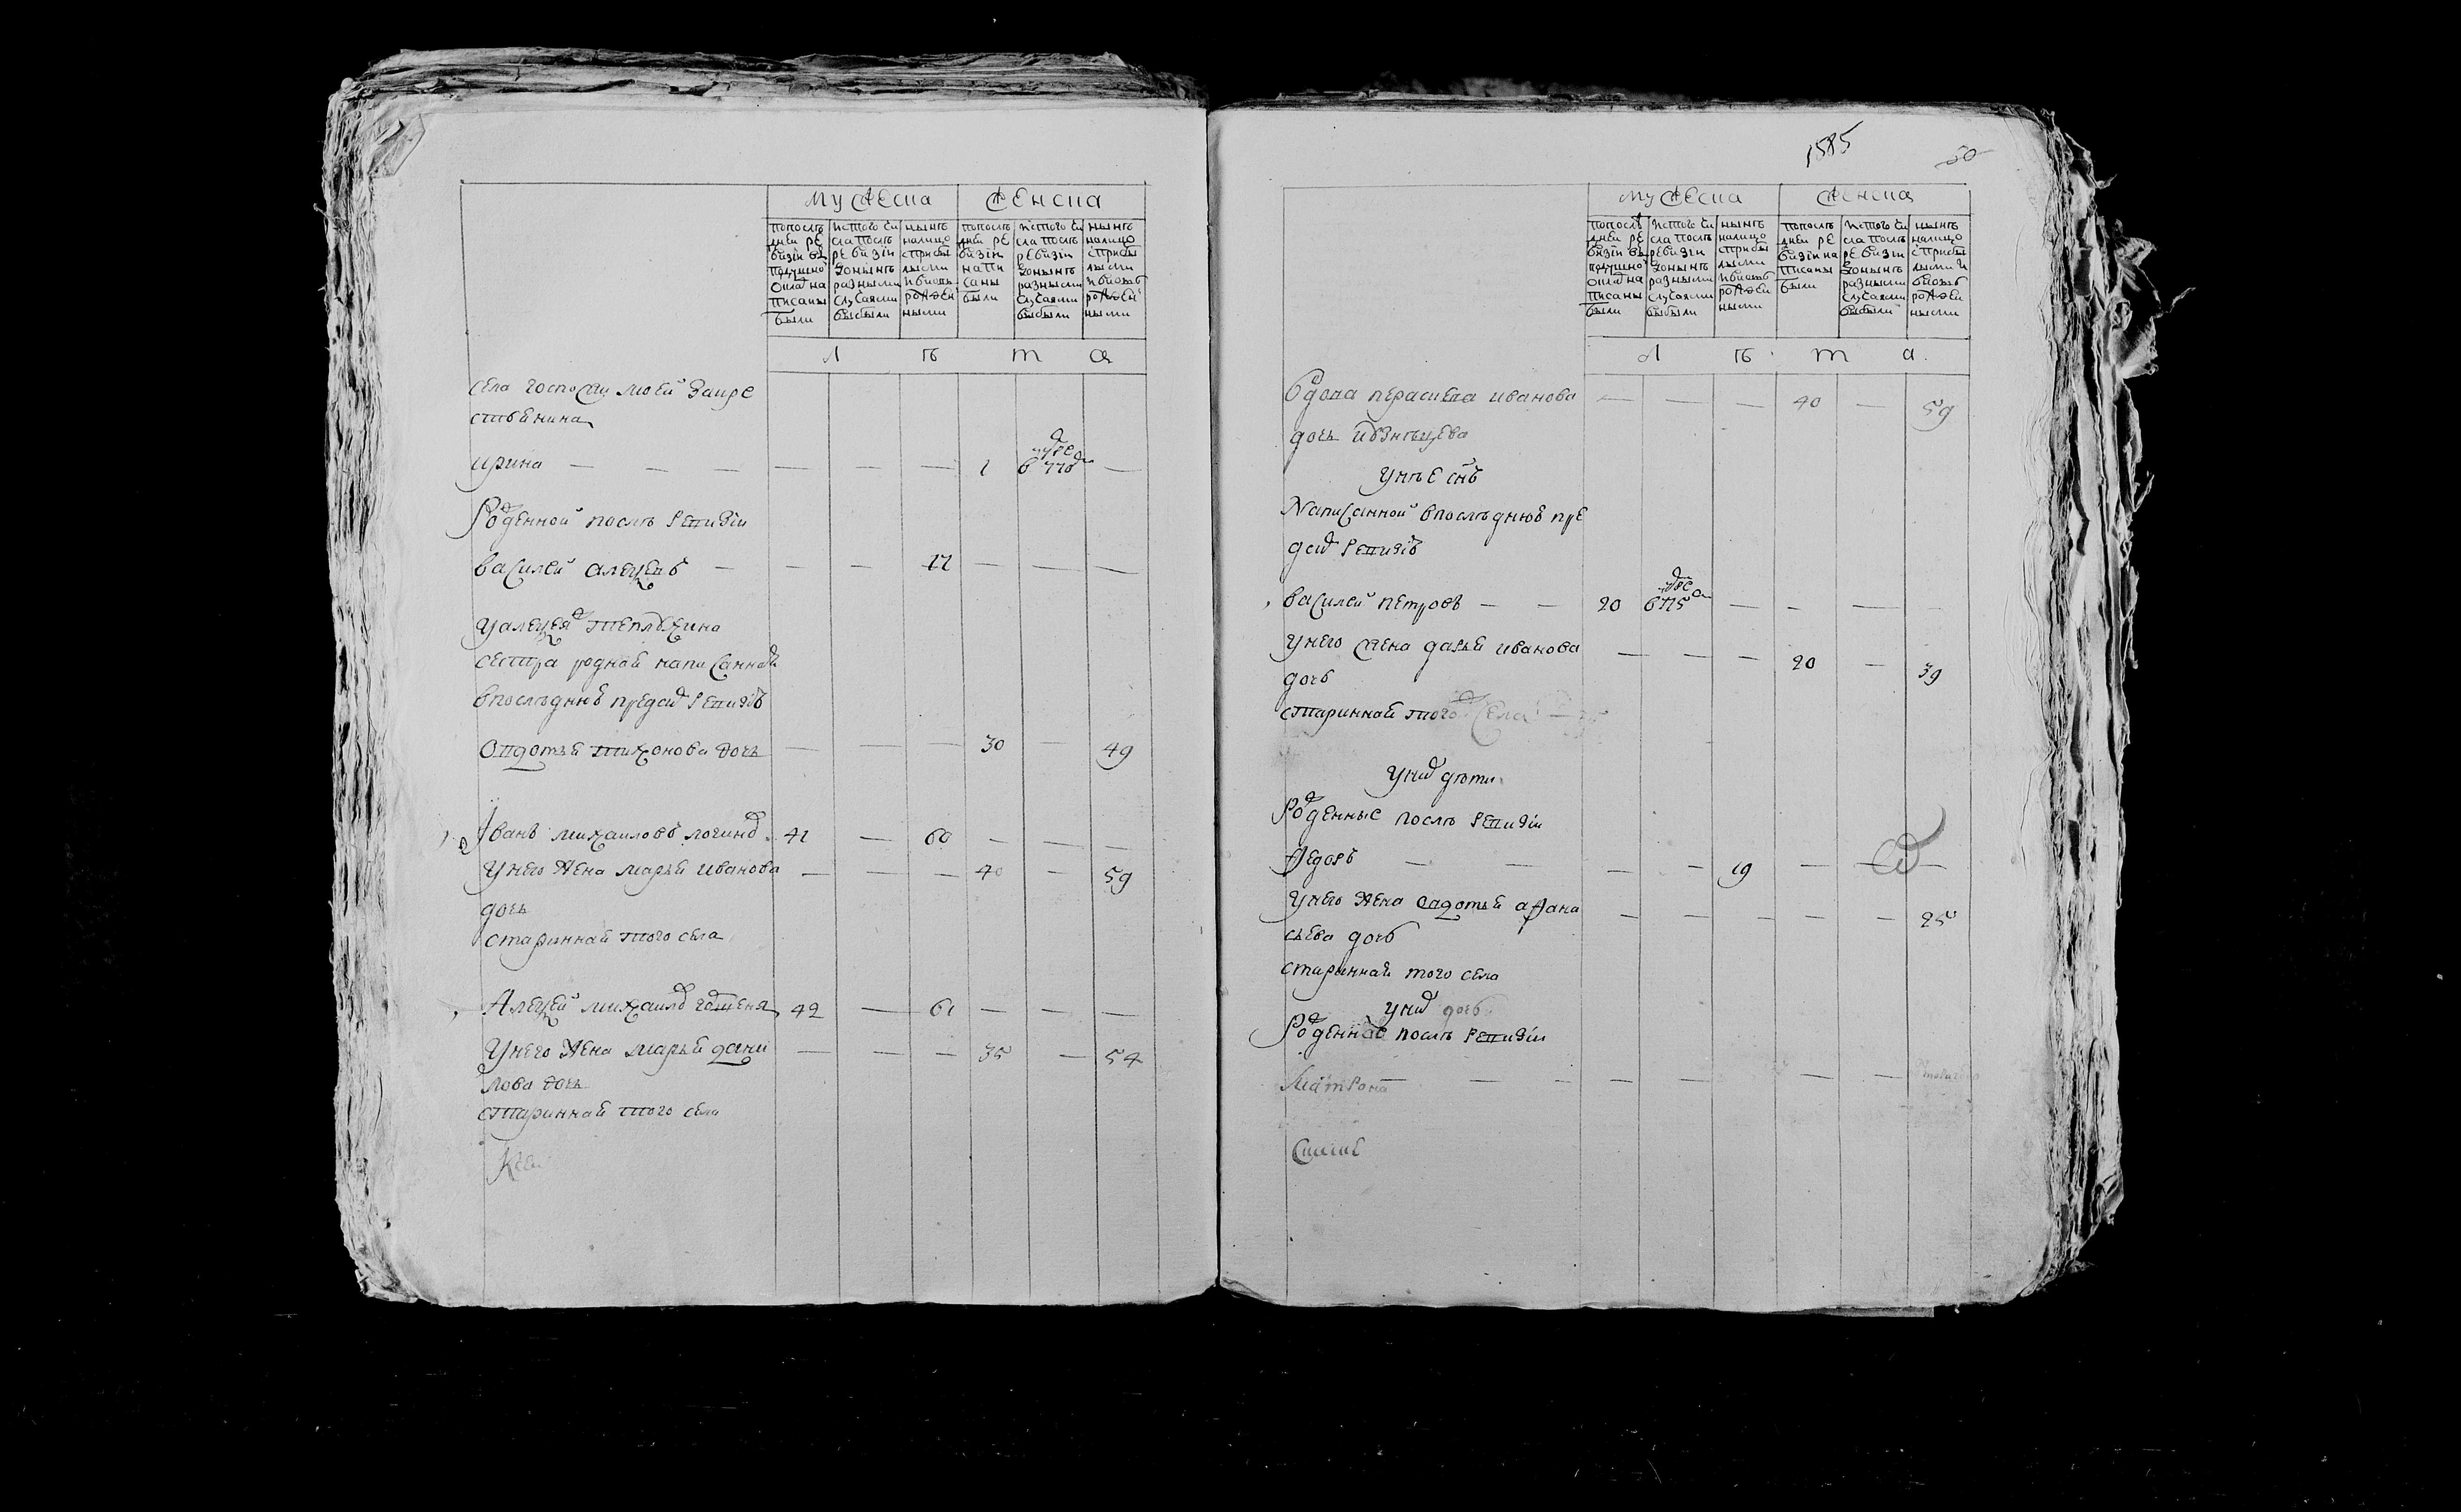 мужеска женска
попослѣ дней ревизіи въ подушной оклад написаны были
исъ того числа послѣ ревизіи донынѣ разными случаями выбыли
нынѣ налицо с прибылыми и вновь рожденными
попослѣ дней ревизіи написаны были
исъ того числа послѣ ревизіи донынѣ разными случаями выбыли
нынѣ налицо с прибылыми и вновь рожденными
л ѣ т а
села госпожи моей
ирина — — — — — — 1 —
рожденной послѣ ревизіи
василей алексеевъ — — — 17 — — —
у алексея
сестра родная написанная
впослѣднюю пред сим ревизію
овдотья тихонова дочь — — — 30 — 49
Іванъ михаиловъ 41 — 60 — — —
у него жена марья иванова — — — 40 — 59
дочь
стариннай того села
Алексей михаилов 42 — 61 — — —
у него жена марья дани — — — 35 — 54
лова дочь
стариннай того села
1585
50
мужеска женска
попослѣ дней ревизіи въ подушной оклад написаны были
исъ того числа послѣ ревизіи донынѣ разными случаями выбыли
нынѣ налицо с прибылыми и вновь рожденными
попослѣ дней ревизіи написаны были
исъ того числа послѣ ревизіи донынѣ разными случаями выбыли
нынѣ налицо с прибылыми и вновь рожденными
л ѣ т а
вдова парасковья иванова — — — 40 — 59
дочь
у нѣе снъ
Написанной впослѣднюю пре
дсим ревизію
василей петровъ — — 20 — — — —
у него жена дарья иванова — — — 20 — 39
дочь
стариннай того села
у них дѣти
рожденные послѣ ревизіи
Федоръ — — — — 19 — — —
у него жена овдотья афана — — — — — 25
сьева дочь
стариннай того села
у них дочь
рожденная послѣ ревизіи
Матрона — — — — — —